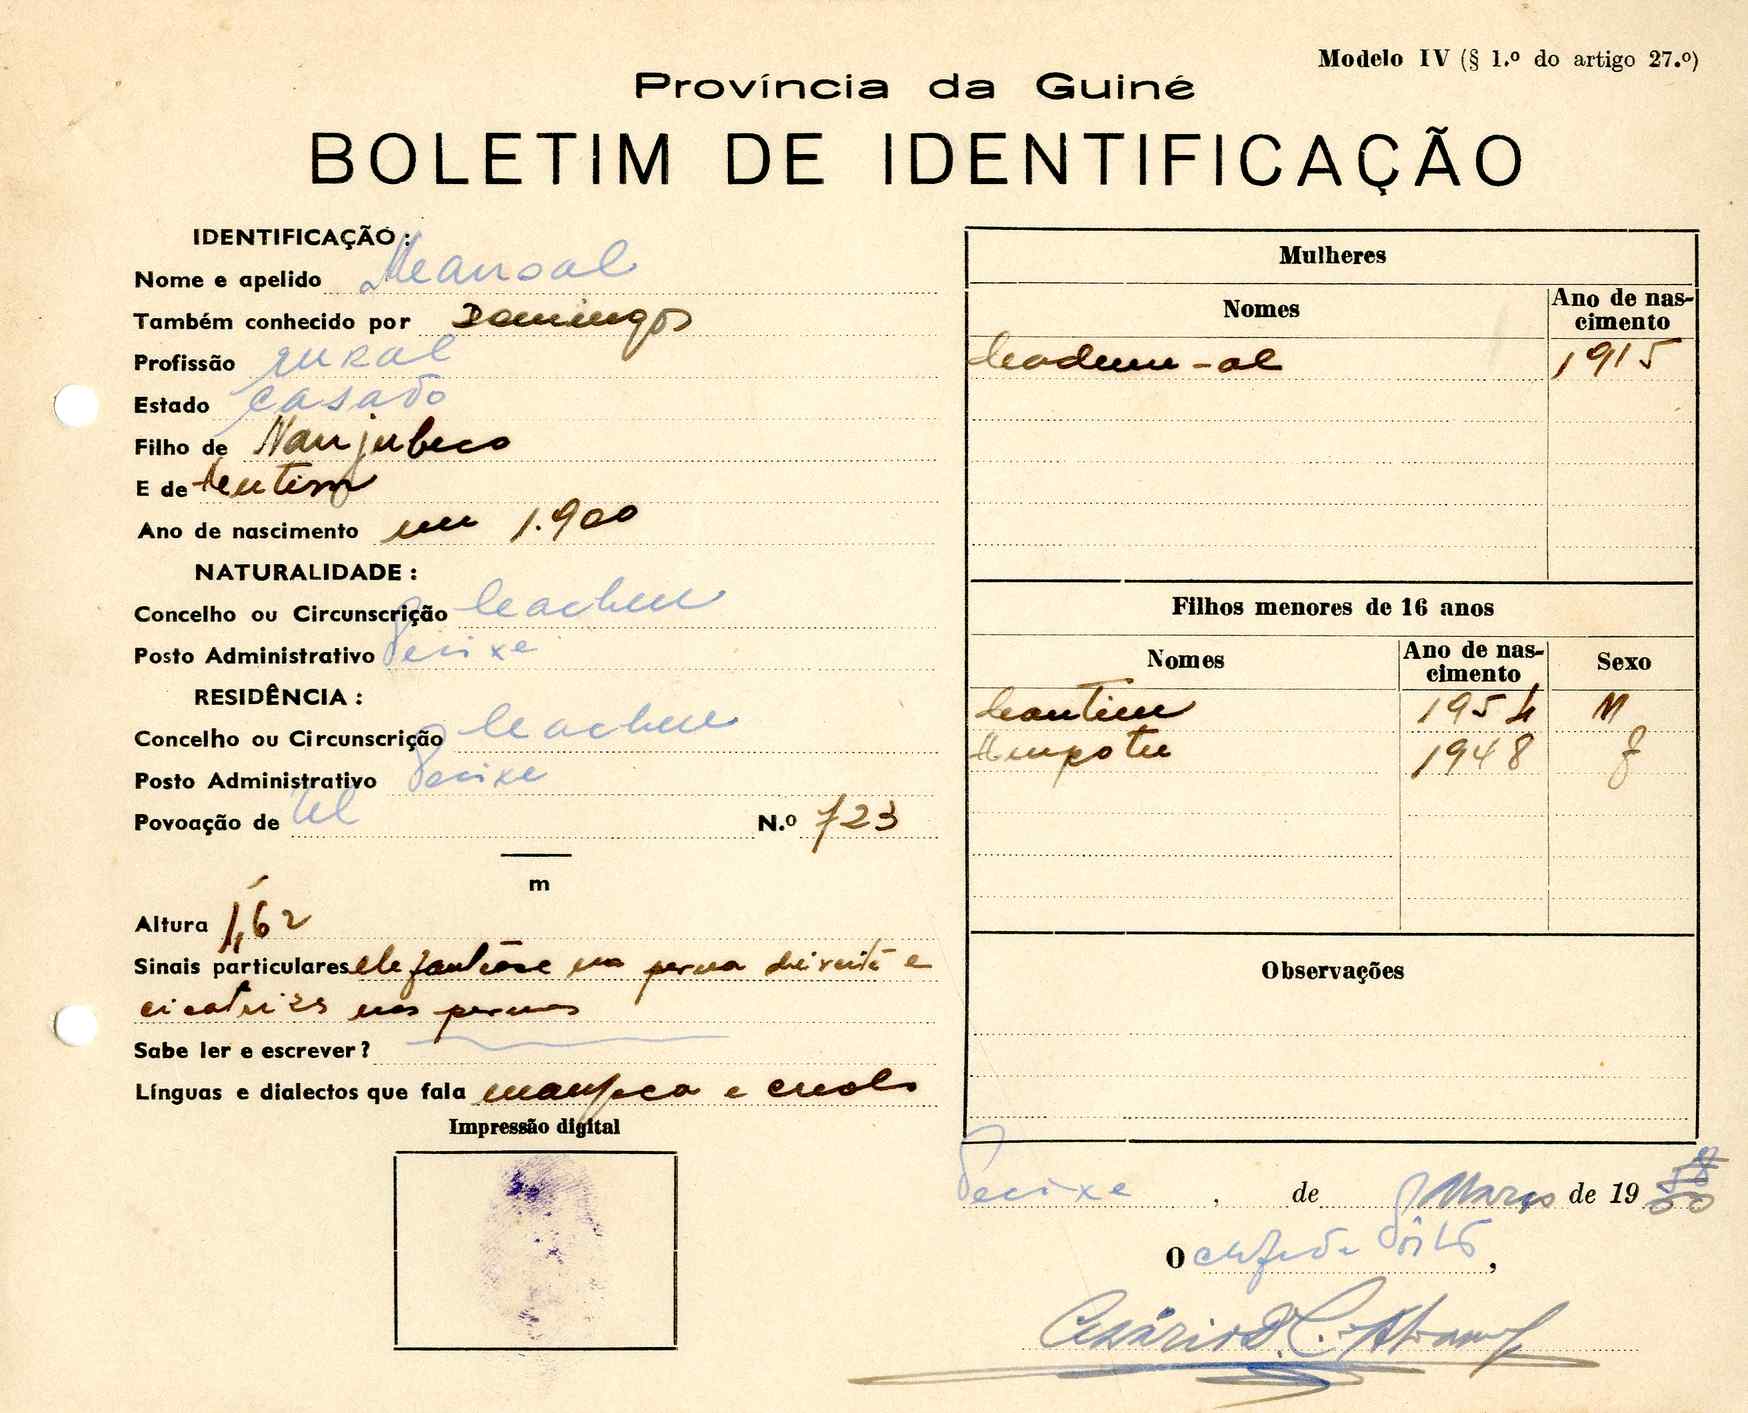 Modelo IV (§ 1.º do artigo 27.º)
Província da Guiné
BOLETIM DE IDENTIFICAÇÃO
IDENTIFICAÇÃO:
Nome e apelido
Também conhecido por Domingos
Profissão rural
Estado casado
Filho de Nanjubeco
E de
Ano de nascimento em 1.900
NATURALIDADE:
Concelho ou Circunscrição Cacheu
Posto Administrativo Pecixe
RESIDÊNCIA:
Concelho ou Circunscrição Cacheu
Posto Administrativo Pecixe
Povoação de N.º 723
m
Altura 1,62
Sinais particulares elefantíase na perna direita e
cicatrizes nas pernas
Sabe ler e escrever?
Línguas e dialectos que fala manjaco e creolo
Impressão digital
Mulheres
Nomes Ano de nascimento
1915
Filhos menores de 16 anos
Nomes Ano de nascimento Sexo
1954 M
1948 f
Observações
Pecixe, de Março de 19
O chefe de Pôsto,